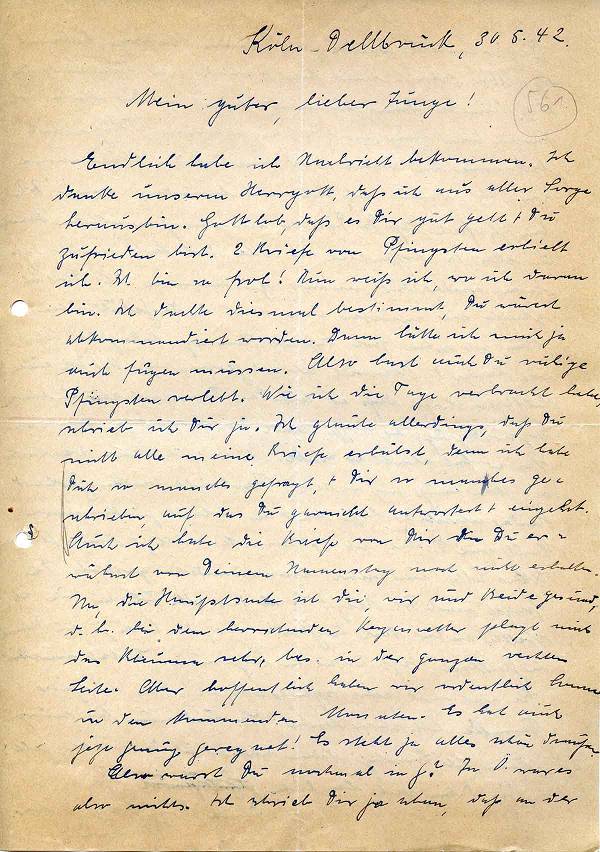 Köln-Dellbrück, 30.5.42.
561
Mein guter, lieber Junge!
Endlich habe ich Nachricht bekommen. Ich
danke unserm Herrgott, daß ich aus aller Sorge
heraus bin. Gottlob, daß es Dir gut geht + Du
zufrieden bist. 2 Briefe von Pfingsten erhielt
ich. Ich bin so froh! Nun weiß ich, wo ich daran
bin. Ich dachte diesmal bestimmt, Du wärest
abkommandiert worden. Dann hätte ich mich ja
auch fügen müssen. Also hast auch Du ruhige
Pfingsten verlebt. Wie ich die Tage verbracht habe,
schrieb ich Dir ja. Ich glaube allerdings, daß Du
nicht alle meine Briefe erhälst, denn ich habe
Dich so manches gefragt, + Dir so manches ge=
schrieben, auf das Du garnicht antwortest + eingehst.
Auch ich habe die Briefe von Dir die Du er=
wähnst von Deinem Namenstag noch nicht erhalten.
Na, die Hauptsache ist die, wir sind Beide gesund,
d. h. bei dem herrschenden Regenwetter plagt mich
das Rheuma sehr, bes. in der ganzen rechten
Seite. Aber hoffentlich haben wir ordentlich Sonne
in den kommenden Monaten. Es hat auch
jetzt genug geregnet! Es steht ja alles schön draußen.
Also warst Du nochmal in G? In O. war es
also nichts. Ich schrieb Dir ja schon, daß an der